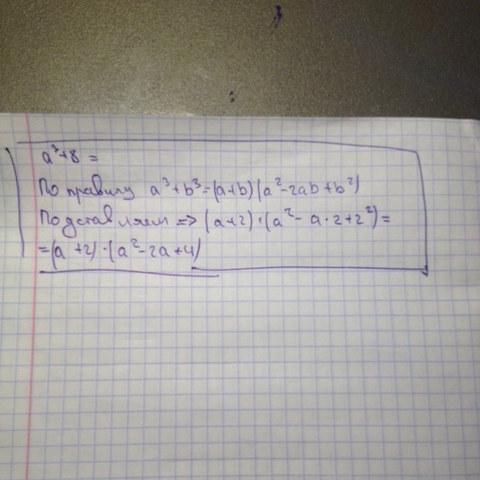 a³+8 =
По правилу a³+b³=(a+b)(a²-2ab+b²)
Подставляем => (a+2)·(a²-a·2+2²)=
=(a+2)·(a²-2a+4)